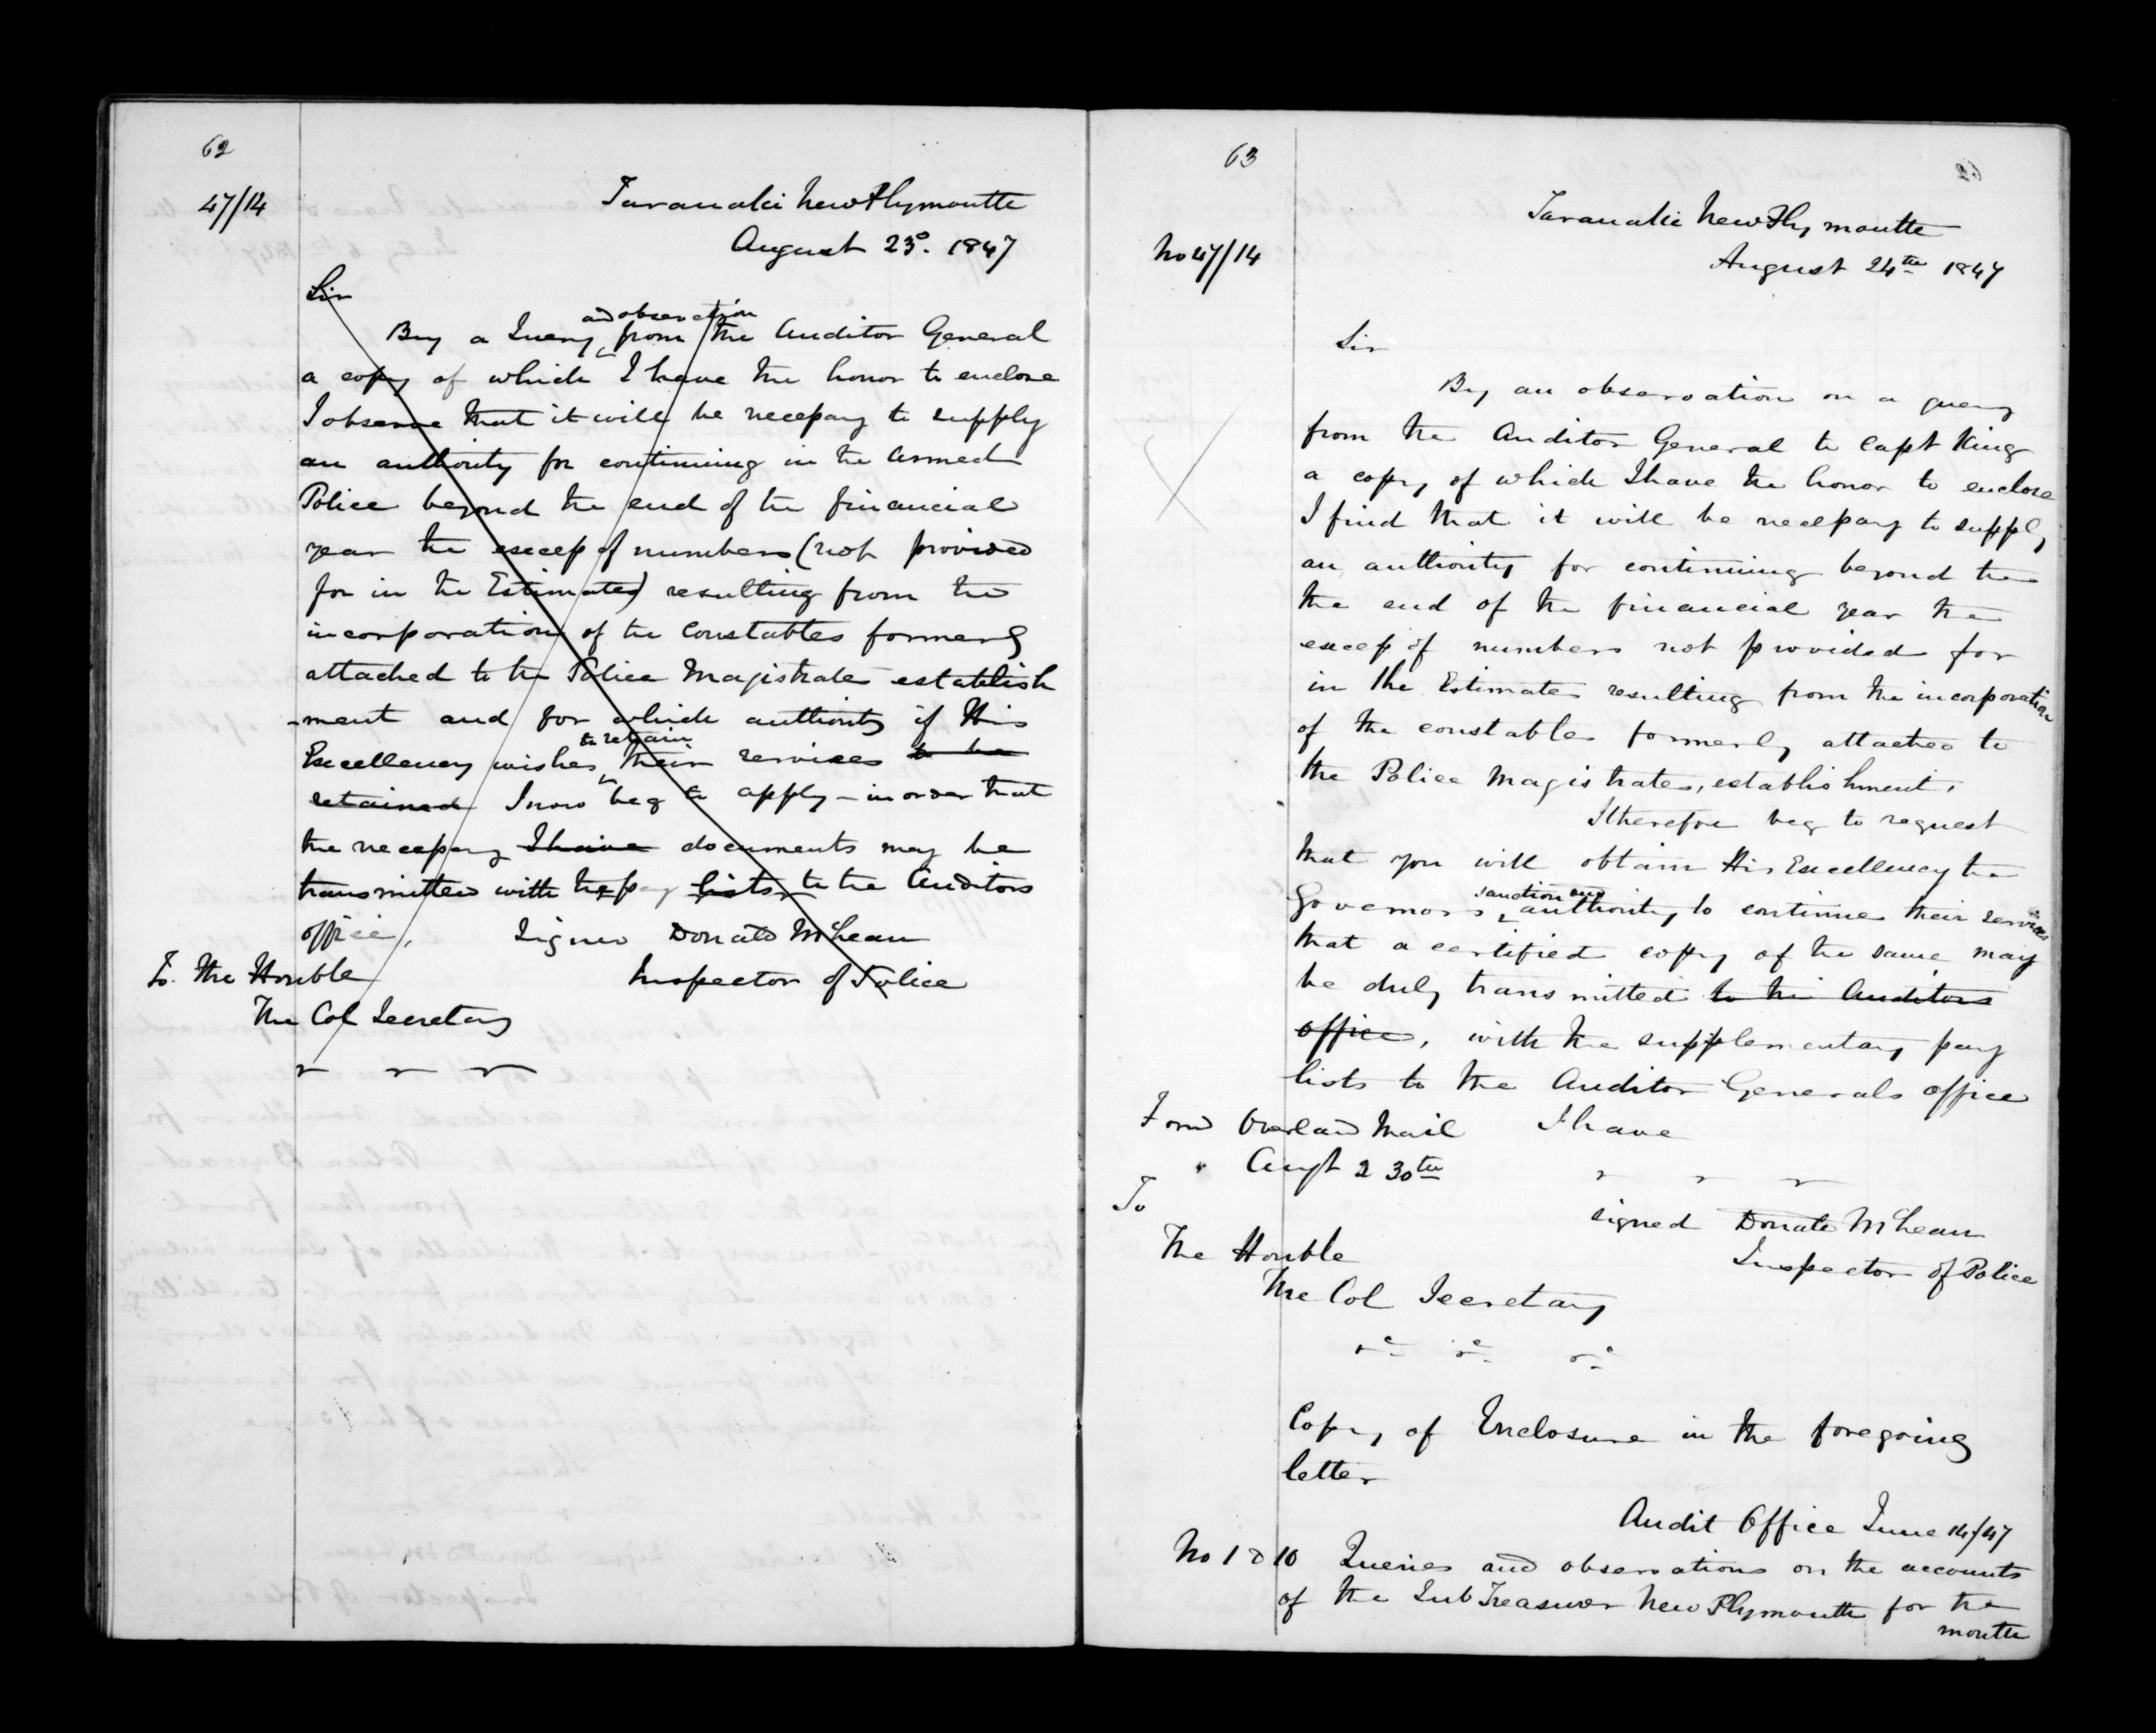 62
47/14
Taranaki New Plymouth
August 23d. 1847
Sir
By a Query and observation from the Auditor General
a copy of which I have the honor to enclose
I observe that it will be necessary to supply
an authority for continuing in the Armed
Police beyond the end of the financial
year the excess of numbers (not provided
for in the Estimates) resulting from the
incorporation of the Constables formerly
attached to the Police Magistrates establish
-ment and for which authority if His
Excellency wishes to retain their services to be
retained I now beg to apply - in order that
the necessary I have documents may be
transmitted with the pay lists to the Auditors
office,
Signed Donald McLean
To. The Honble
Inspector of Police
The Col Secretary
63
No 47/14
Taranaki New Plymouth
August 24th 1847
Sir
By an observation on a query
from the Auditor General to Capt King
a copy of which I have the honor to enclose
I find that it will be necessary to supply
an authority for continuing beyond the
the end of the financial year the
excess of numbers not provided for
in the Estimates resulting from the incorporation
of the constables formerly attached to
the Police Magistrates, establishment.
I therefore beg to request
that you will obtain His Excellency the
Governors sanction and authority to continue their services
that a certified copy of the same may
be duly transmitted to the Auditors
office, with the supplementary pay
lists to the Auditor Generals office
Forwd Overland Mail
I have
" Augt 2 30th
To
signed Donald McLean
The Honble
Inspector of Police
The Col Secretary
&c &c &c
Copy of Enclosure in the foregoing
letter
Audit Office June 14/47
No 1 & 10 Queries and observations on the accounts
of the Sub Treasurer New Plymouth for the
month